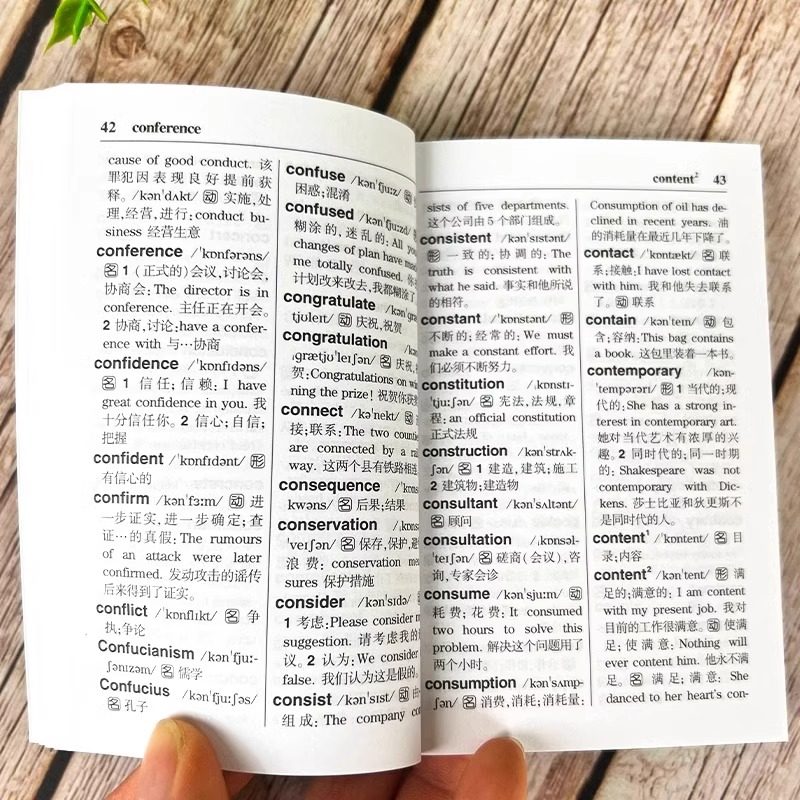 42 conference
cause of good conduct. 该
罪犯因表现良好提前获
释。/kənˈdʌkt/ 动 实施,处
理,经营,进行:conduct bu-
siness 经营生意
conference /ˈkɒnfərəns/
名 1 (正式的)会议,讨论会,
协商会:The director is in
conference. 主任正在开会。
2 协商,讨论:have a confer-
ence with 与…协商
confidence /ˈkɒnfɪdəns/
名 1 信任;信赖: I have
great confidence in you. 我
十分信任你。2 信心;自信;
把握
confident /ˈkɒnfɪdənt/ 形
有信心的
confirm /kənˈfɜ:m/ 动 进
一步证实,进一步确定;查
证…的真假:The rumours
of an attack were later
confirmed. 发动攻击的谣传
后来得到了证实。
conflict /ˈkɒnflɪkt/ 名 争
执;争论
Confucianism /kənˈfju:-
ʃənɪzəm/ 名 儒学
Confucius /kənˈfju:ʃəs/
名 孔子
confuse /kənˈfju:z/ 动
困惑;混淆
confused /kənˈfju:zd/
糊涂的,迷乱的: All
changes of plan have
me totally confused.
计划改来改去,我都糊涂了
congratulate
tjʊleɪt/ 动 庆祝,祝贺
congratulation
ˌgrætjʊˈleɪʃən/ 名 庆祝,
贺:Congratulations on
ning the prize! 祝贺你获
connect /kəˈnekt/ 动
接;联系:The two
are connected by a
way. 这两个县有铁路相连
consequence
kwəns/ 名 后果;结果
conservation
ˈveɪʃən/ 名 保存,保护,
浪费: conservation
sures 保护措施
consider /kənˈsɪdə/
1 考虑:Please consider
suggestion. 请考虑我的
议。2 认为:We consider
false. 我们认为这是假的。
consist /kənˈsɪst/ 动
组成: The company
content² 43
sists of five departments.
这个公司由5个部门组成。
consistent /kənˈsɪstənt/
形 一致的;协调的:The
truth is consistent with
what he said. 事实和他所说
的相符。
constant /ˈkɒnstənt/ 形
不断的;经常的: We must
make a constant effort. 我
们必须不断努力。
constitution /ˌkɒnstɪ-
ˈtju:ʃən/ 名 宪法,法规,章
程: an official constitution
正式法规
construction /kənˈstrʌk-
ʃən/ 名 1 建造,建筑;施工
2 建筑物;建造物
consultant /kənˈsʌltənt/
名 顾问
consultation /ˌkɒnsəl-
ˈteɪʃən/ 名 磋商(会议),咨
询,专家会诊
consume /kənˈsju:m/ 动
耗费;花费: It consumed
two hours to solve this
problem. 解决这个问题用了
两个小时。
consumption /kənˈsʌmp-
ʃən/ 名 消费,消耗;消耗量:
Consumption of oil has de-
clined in recent years. 油
的消耗量在最近几年下降了。
contact /ˈkɒntækt/ 名 联
系;接触:I have lost contact
with him. 我和他失去联系
了。动 联系
contain /kənˈteɪn/ 动 包
含;容纳:This bag contains
a book. 这包里装着一本书。
contemporary /kən-
ˈtempərərɪ/ 形 1 当代的;现
代的:She has a strong in-
terest in contemporary art.
她对当代艺术有浓厚的兴
趣。2 同时代的;同一时期
的: Shakespeare was not
contemporary with Dic-
kens. 莎士比亚和狄更斯不
是同时代的人。
content¹ /ˈkɒntent/ 名 目
录;内容
content² /kənˈtent/ 形 满
足的;满意的: I am content
with my present job. 我对
目前的工作很满意。动 使满
足;使满意: Nothing will
ever content him. 他永不满
足。名 满足;满意: She
danced to her heart's con-